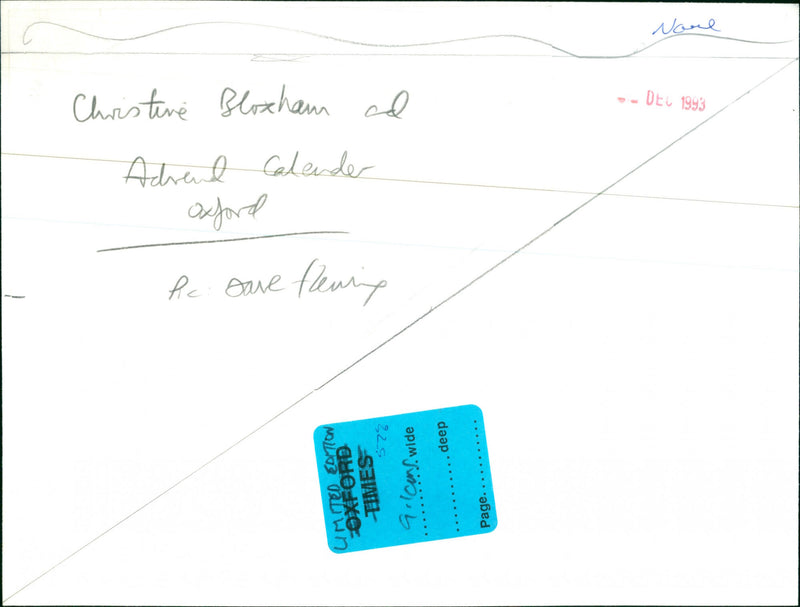 -- DEC 1993
Christine Bloxham ad
Advend Calender
Oxford
Pic Dave Fleming
LIMITED EDITION
OXFORD
TIMES
578
9.1cms. wide
deep
Page